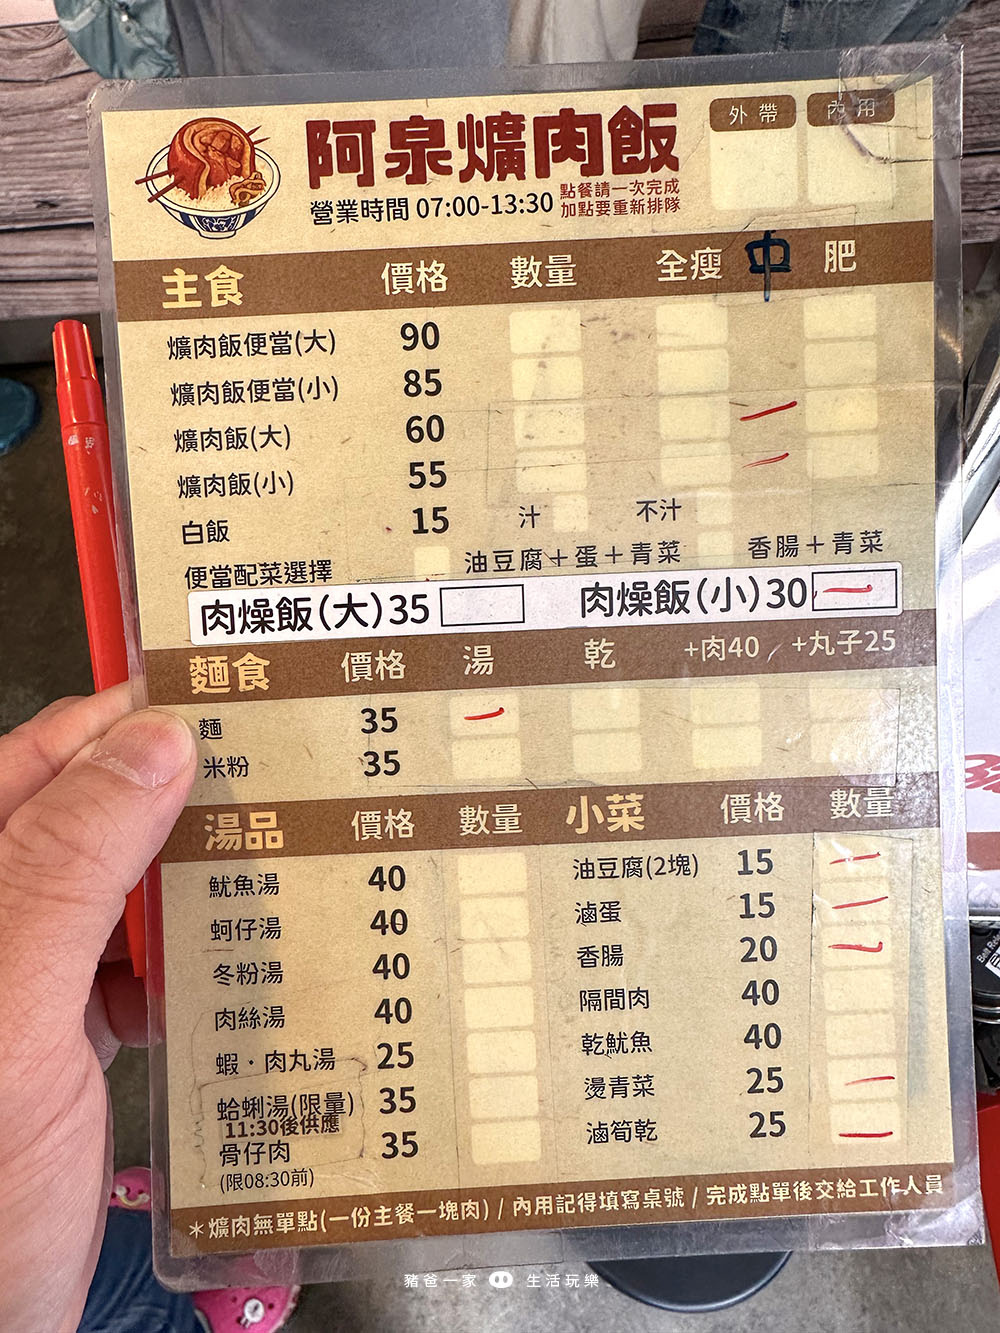 外帶 內用
阿泉爌肉飯
營業時間 07:00-13:30
點餐請一次完成
加點要重新排隊
主食 價格 數量 全瘦 中 肥
爌肉飯便當(大) 90
爌肉飯便當(小) 85
爌肉飯(大) 60
爌肉飯(小) 55
白飯 15 汁 不汁
便當配菜選擇 油豆腐＋蛋＋青菜 香腸＋青菜
肉燥飯(大)35 肉燥飯(小)30
麵食 價格 湯 乾 +肉40 +丸子25
麵 35
米粉 35
湯品 價格 數量 小菜 價格 數量
魷魚湯 40 油豆腐(2塊) 15
蚵仔湯 40 滷蛋 15
冬粉湯 40 香腸 20
肉絲湯 40 隔間肉 40
蝦・肉丸湯 25 乾魷魚 40
蛤蜊湯(限量) 35 燙青菜 25
11:30後供應
骨仔肉 35 滷筍乾 25
(限08:30前)
＊爌肉無單點(一份主餐一塊肉) / 內用記得填寫桌號 / 完成點單後交給工作人員
豬爸一家 生活玩樂